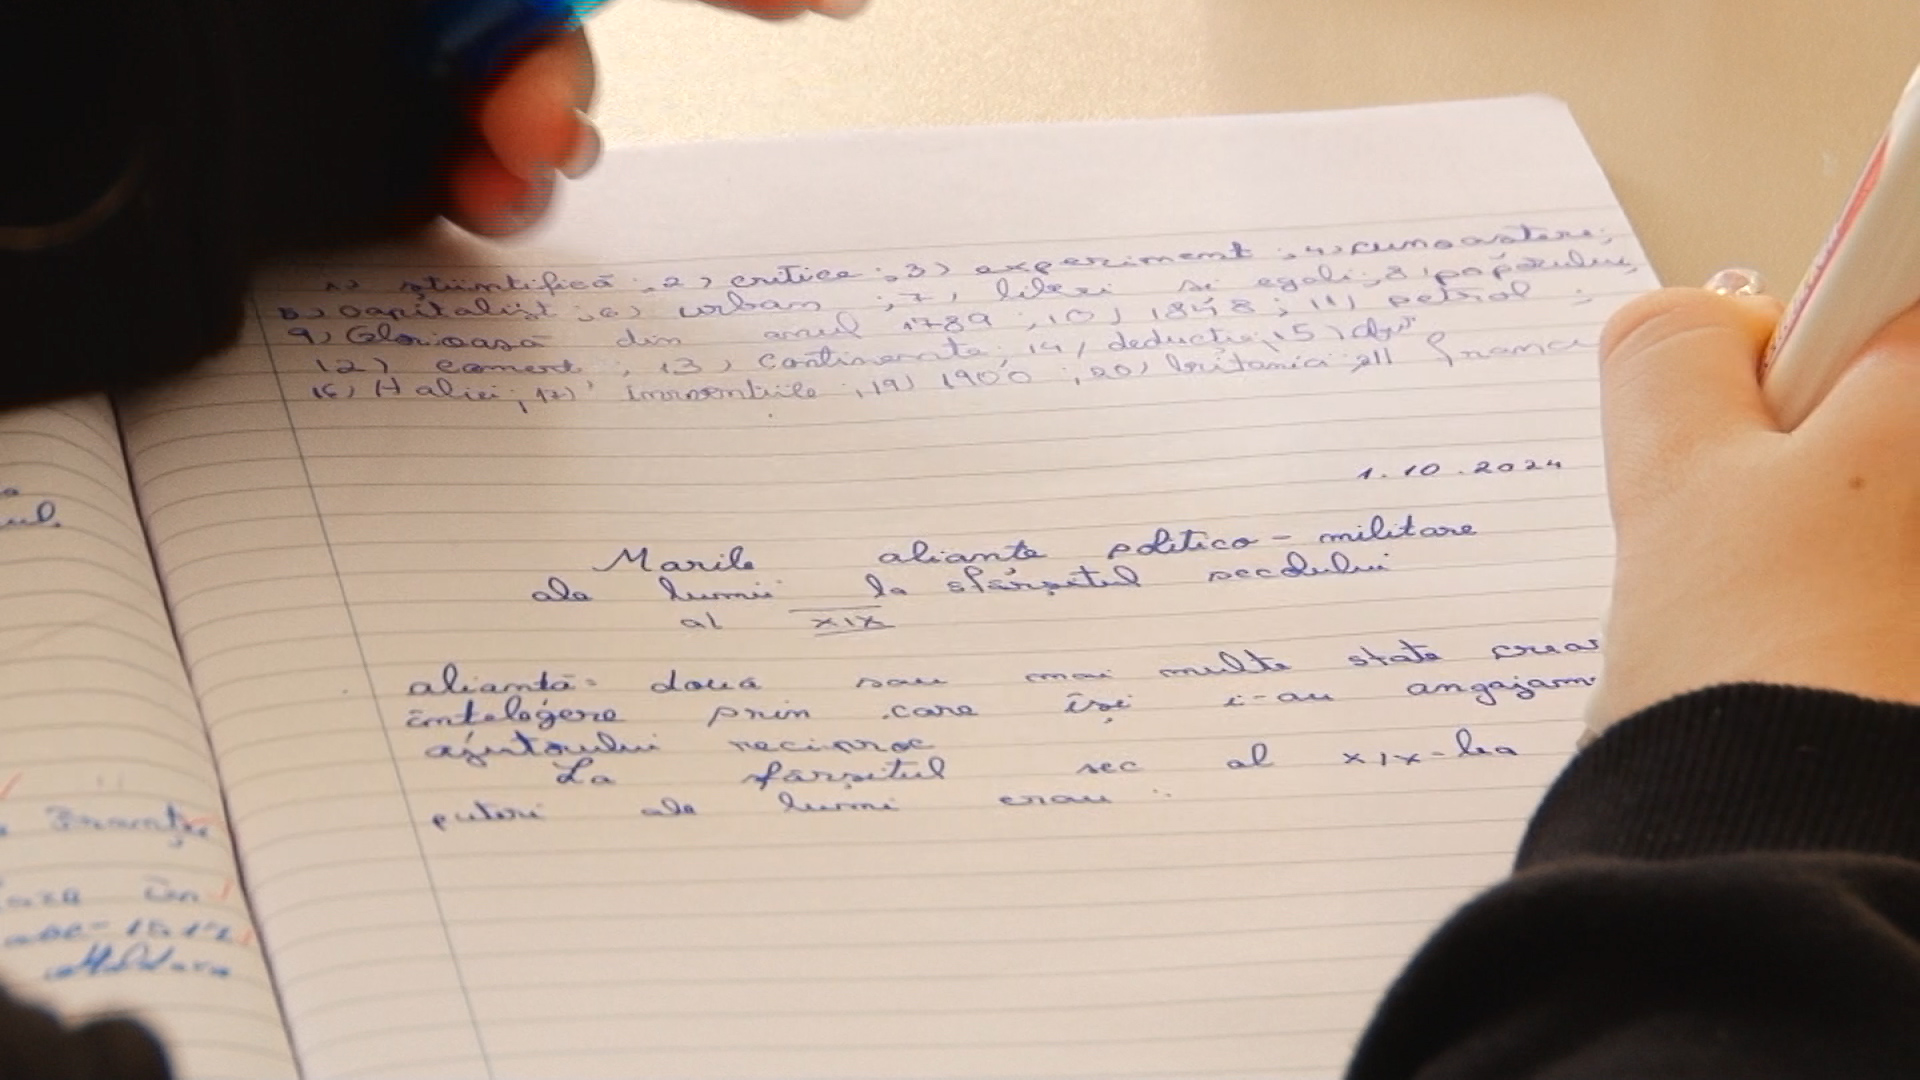 1) stiintifică ; 2) critice ; 3) experiment ; 4) cunoastere ;
5) capitalist ; 6) urban ; 7) liberi si egali ; 8) poporului ;
9) Glorioasă din anul 1789 ; 10) 1848 ; 11) petrol ;
12) comert ; 13) continente ; 14) deductie ; 15)
16) Italiei ; 17) inventiile ; 19) 1900 ; 20) britania ; 211 franc
1.10.2024
Marile aliante politico-militare
ale lumii la sfârșitul secolului
al XIX
aliantă= două sau mai multe state crea
întelegere prin care își i-au angajam
ajutorului reciproc
La sfârșitul sec al XIX-lea
puteri ale lumi erau :
ul.
în
Moldova